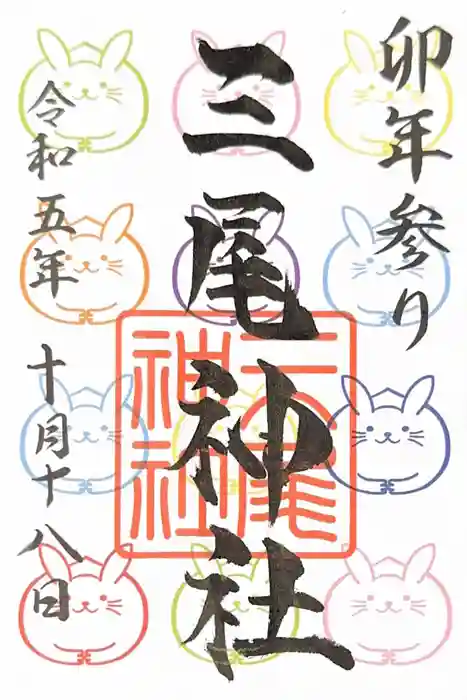 卯年参り
三尾神社
三尾神社
令和五年
十月十八日